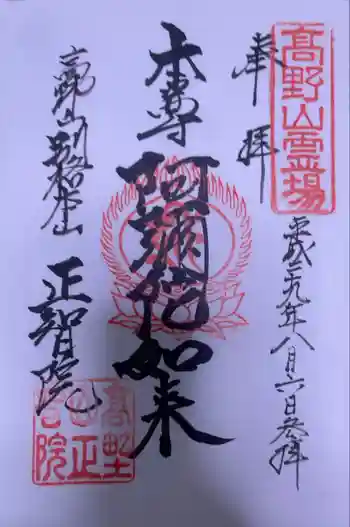 高野山霊場
奉拝
平成二十九年八月六日参拝
本尊
阿弥陀如来
高野山別格本山
正智院
高野
山正
智院